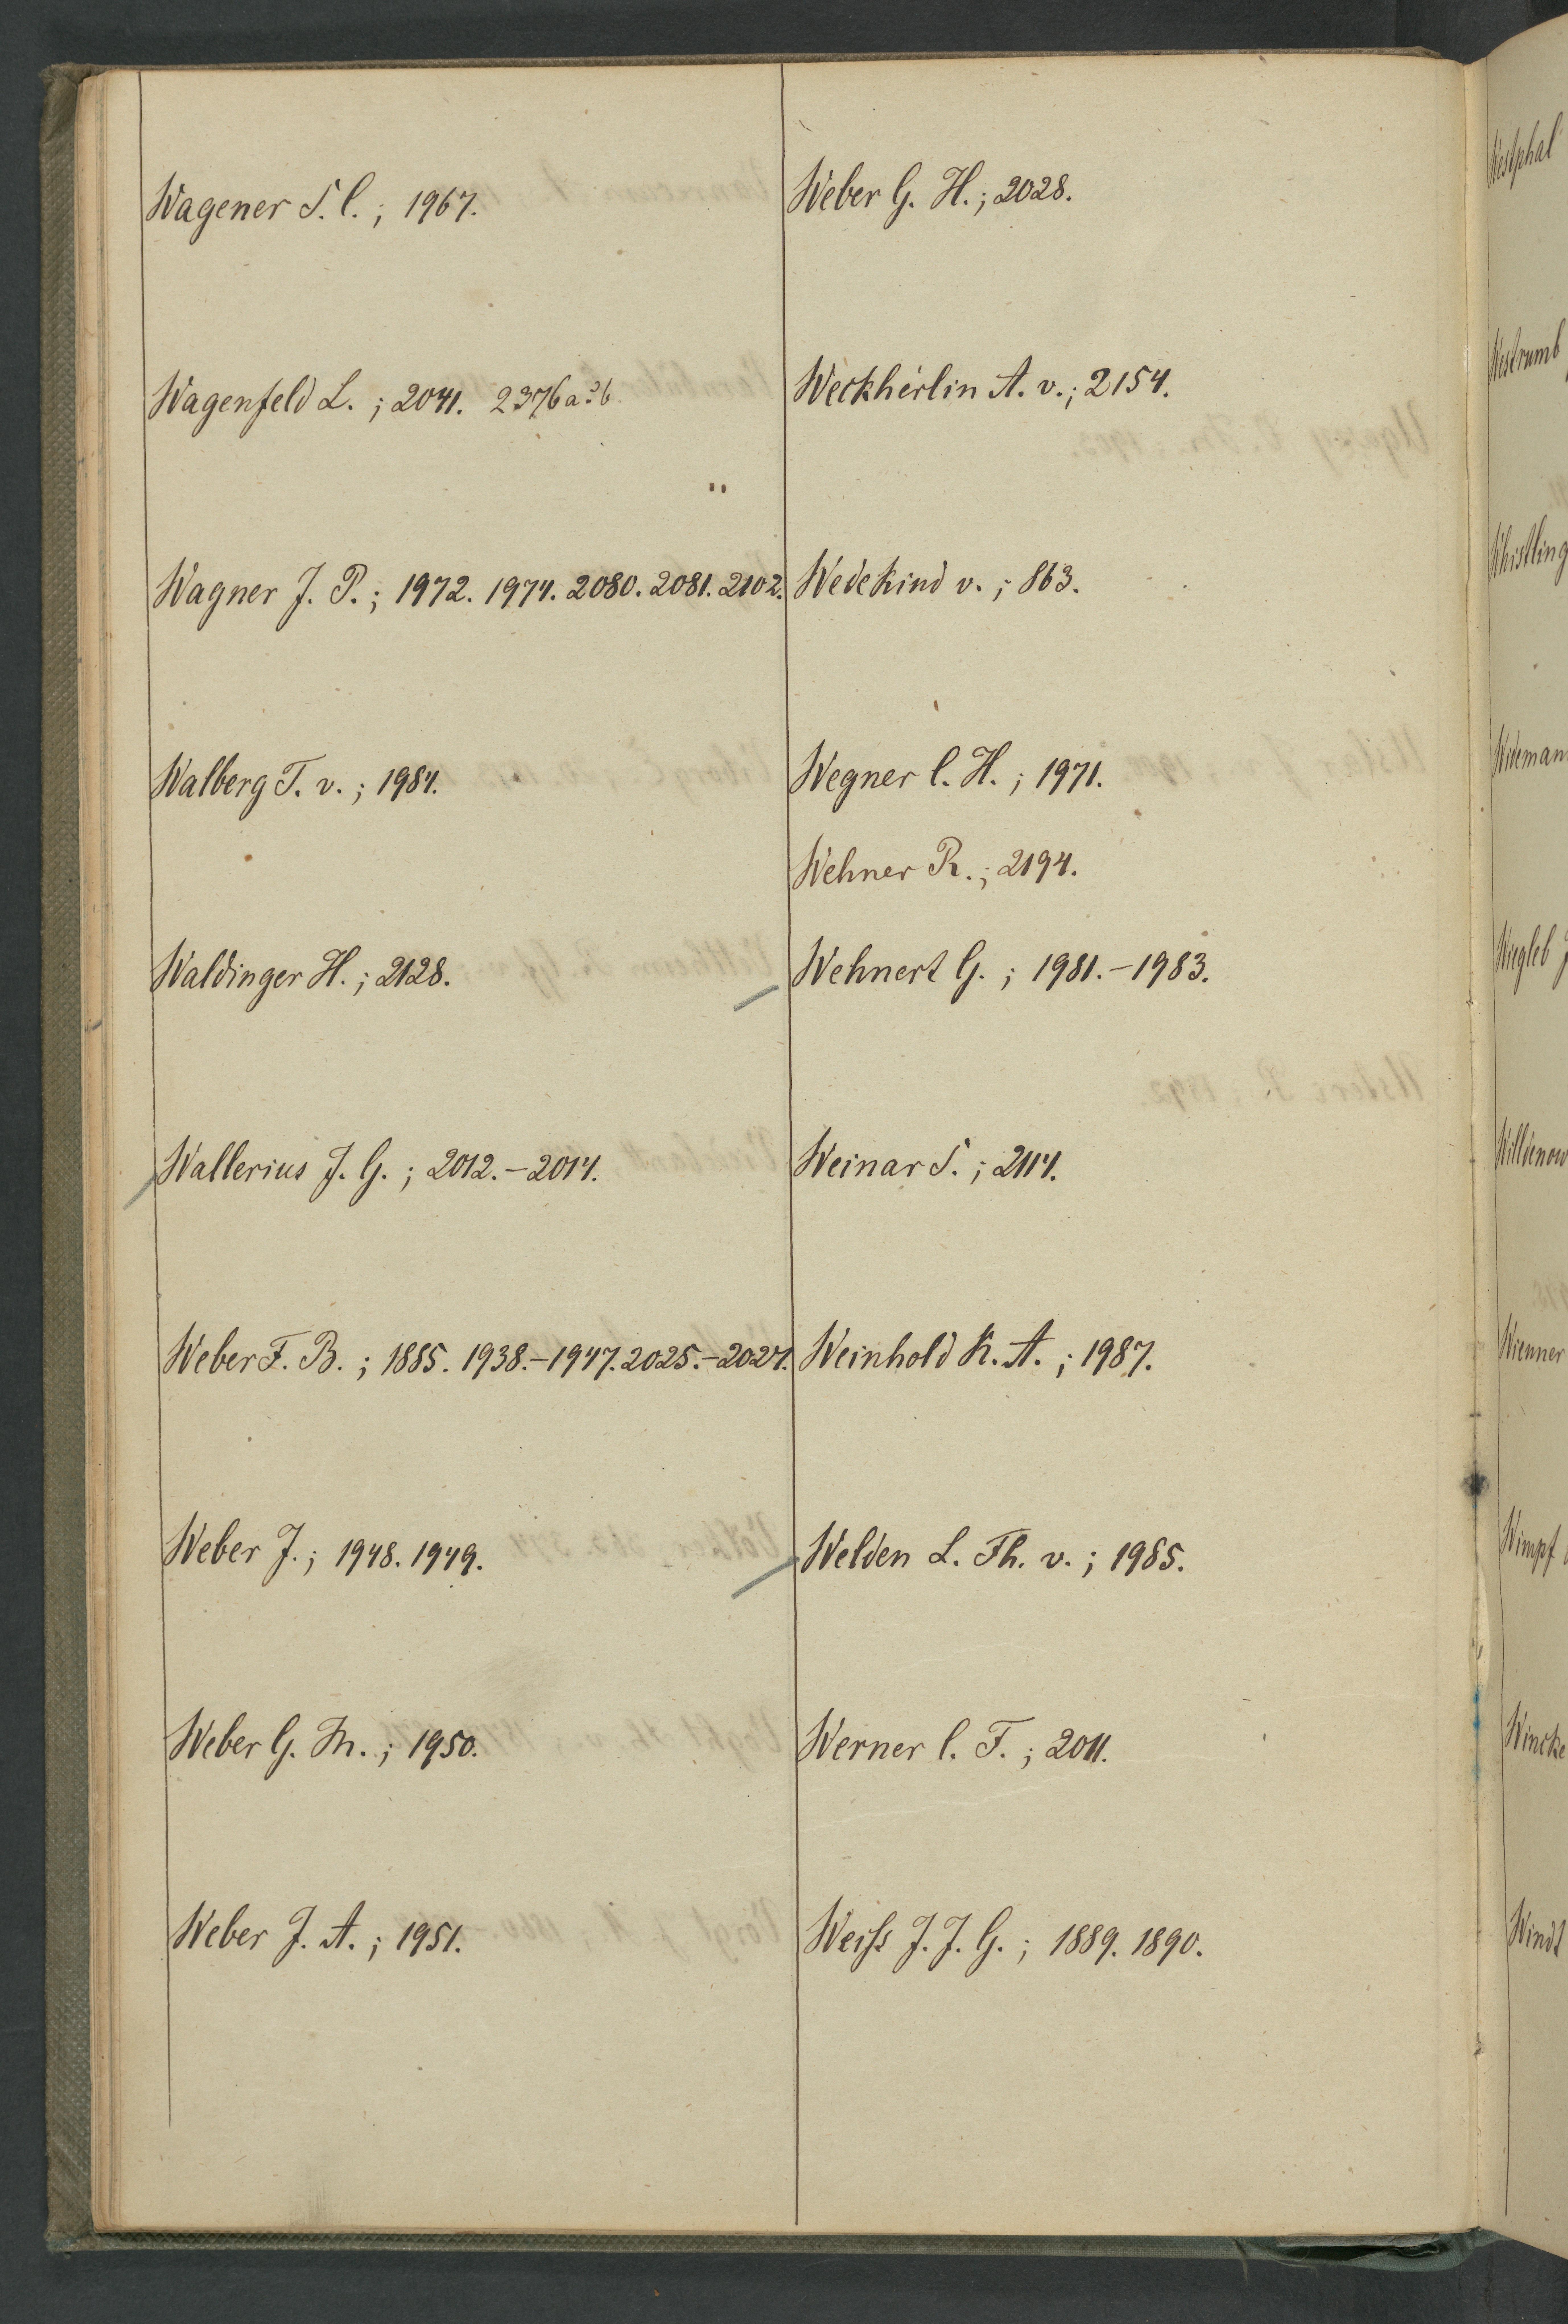 Wagener S. C.; 1967.
Wagenfeld L.; 2041. 2376 a & b
Wagner J. P.; 1972. 1974. 2080. 2081. 2102.
Walberg T. v.; 1984.
Waldinger H.; 2128.
Wallerius J. G.; 2012.-2014.
Weber F. B.; 1885. 1938.-1947. 2025.-2027.
Weber J.; 1948. 1949.
Weber G. M.; 1950.
Weber J. A.; 1951.
Weber G. H.; 2028.
Weckherlin A. v.; 2154.
Wedekind v.; 863.
Wegner C. H.; 1971.
Wehner R.; 2194.
Wehnert G.; 1981.-1983.
Weinar S.; 2114.
Weinhold K. A.; 1987.
Welden L. Th. v.; 1985.
Werner C. F.; 2011.
Weiſs J. J. G.; 1889. 1890.
Westphal
Westrumb
Whistling
Widemann
Wiegleb J
Willdenow
Wienner
Wimpf
Wincke
Windt